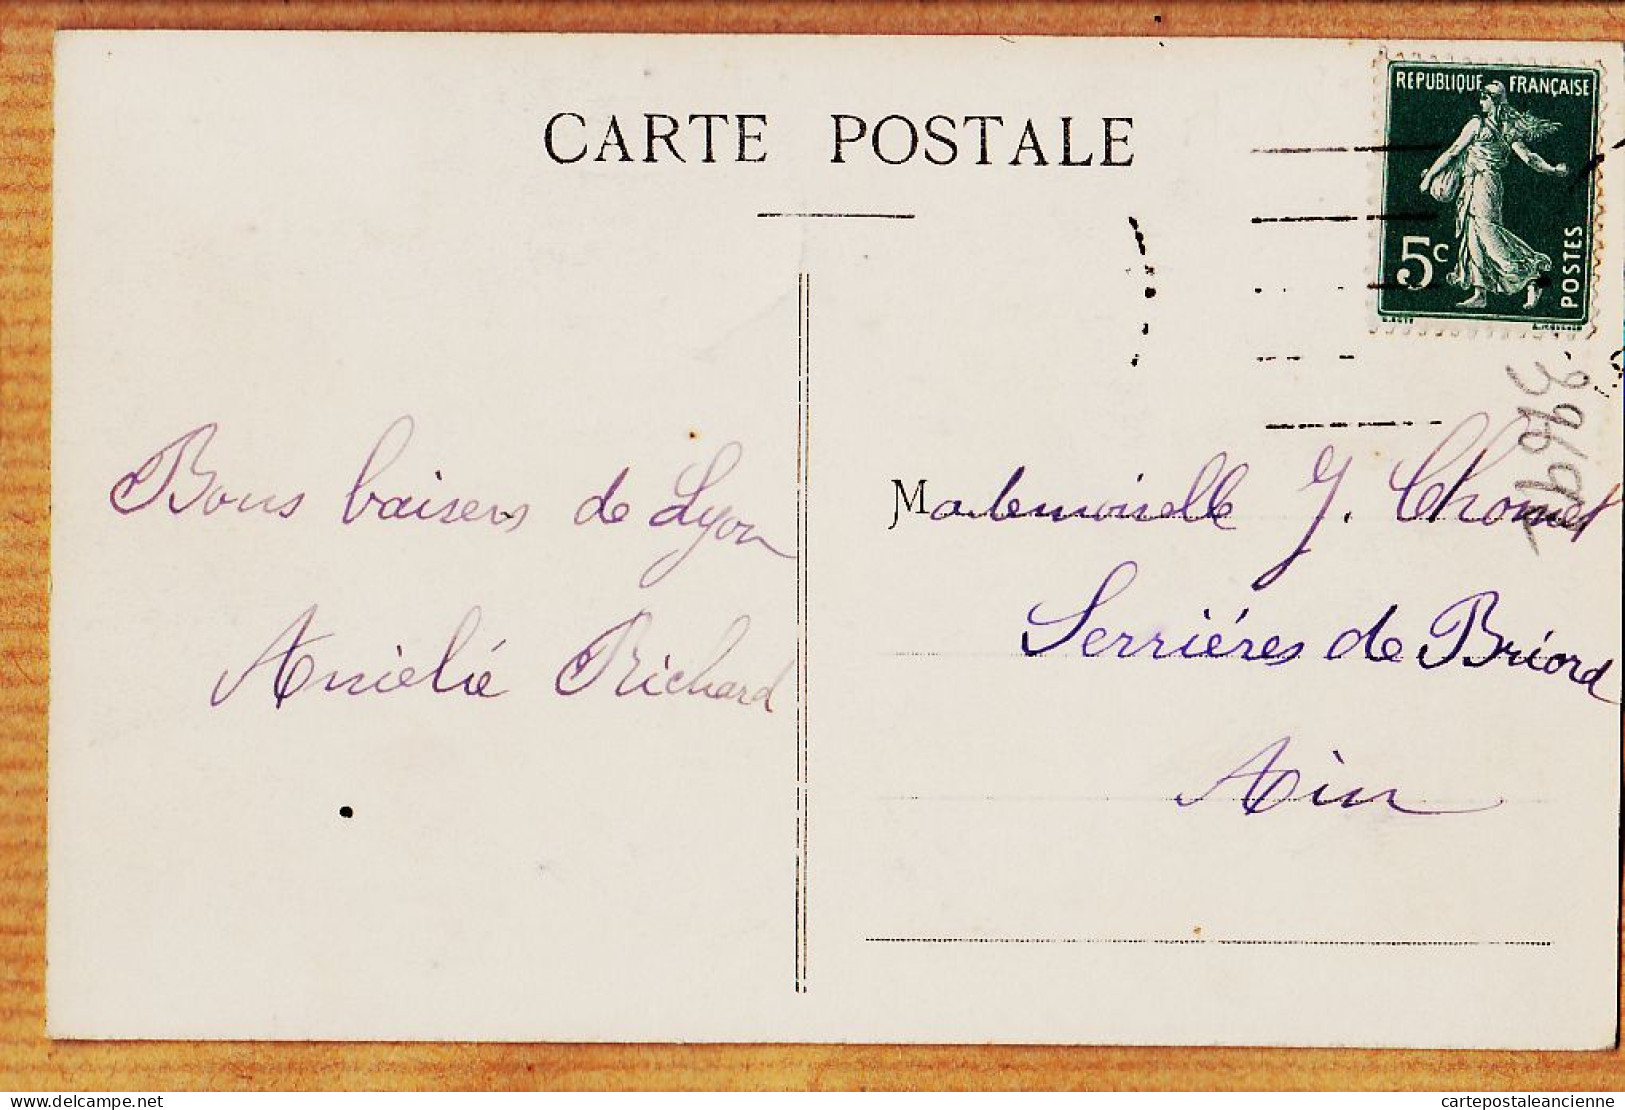 CARTE POSTALE
REPUBLIQUE FRANÇAISE
5c
POSTES
Bons baisers de Lyon
Amélie Richard
Mademoiselle J. Chomet
Serriéres de Briord
Ain
delcampe.net
cartepostaleancienne